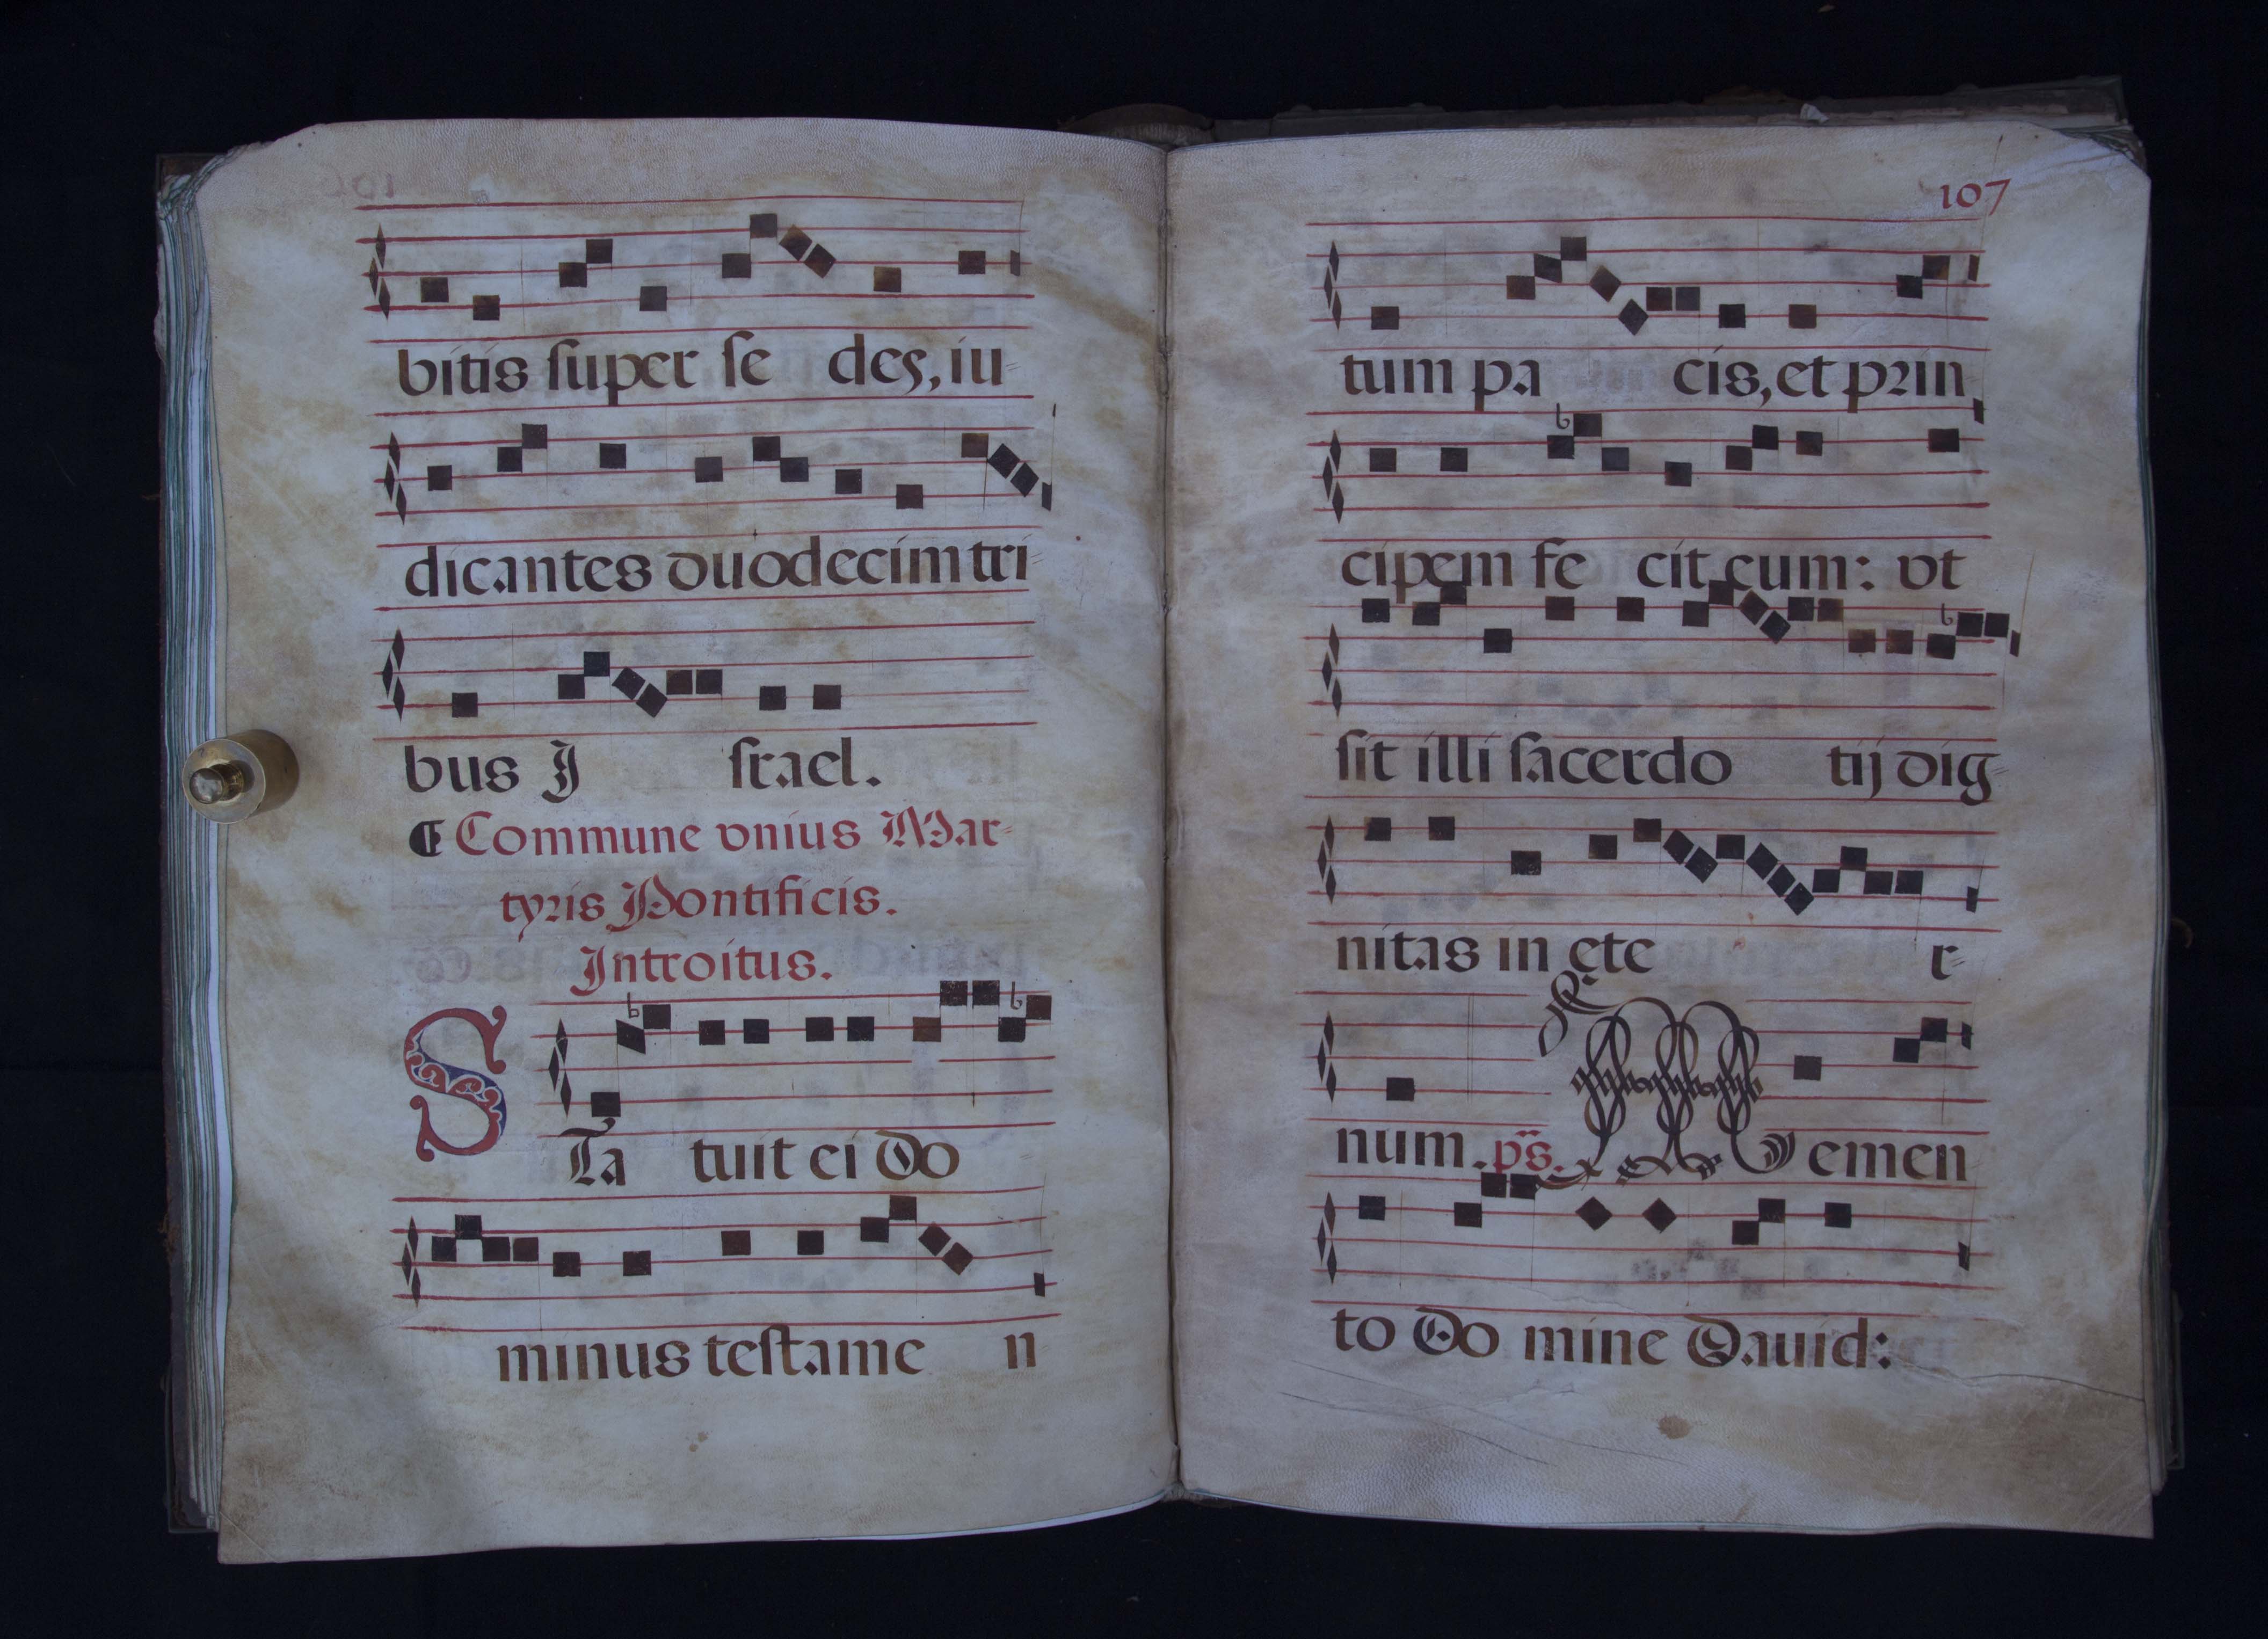 bitis super se des, iu
dicantes duodecim tri
bus I srael.
Commune vnius Mar-
tyris Pontificis.
Introitus.
STa tuit ei Do
minus testame n
107
tum pa cis, et prin
cipem fe cit eum: vt
sit illi sacerdo tij dig-
nitas in ete r-
num. ps. Memen
to Do mine Dauid: